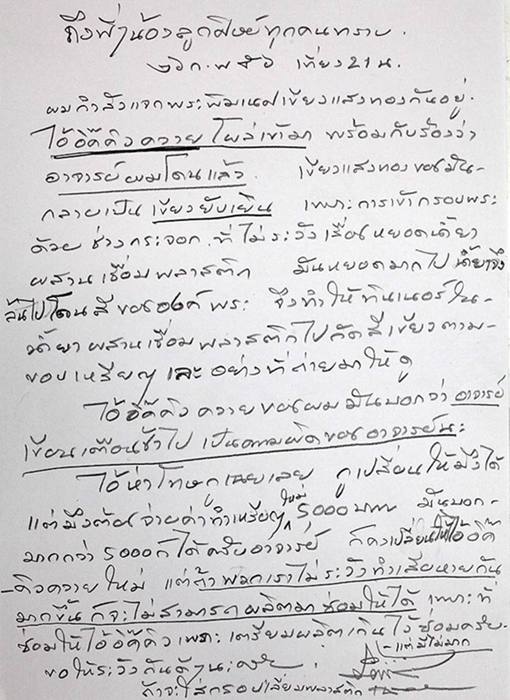 ถึงพี่น้องลูกศิษย์ทุกคนทราบ.
๒๖ก.พ๕๖ เที่ยง 21 น.
ผมกำลังแจกพระพิฆเนศเขียงแสงทองกันอยู่.
ไอ้อิ๊คิวควาย โผล่เข้ามา พร้อมกับร้องว่า
อาจารย์ผมโดนแล้ว. เขียงแสงทองของมัน-
กลายเป็น เขียงยับเยิน เพราะการเข้ากรอบพระ
ด้วย ช่างกระจอก.ที่ไม่ระวังเรื่องหยอดน้ำยา
ผสานเชื่อมพลาสติก มันหยอดมากไป น้ำยาจึง
ล้นไปโดนสีขององค์พระ จึงทำให้ทินเนอร์ใน-
น้ำยาผสานเชื่อมพลาสติกไปกัดสีเขียงตาม-
ขอบเหรียญ และ อย่างที่ถ่ายมาให้ดู
ไอ้อิ๊คิวควายของผมมันบอกว่า อาจารย์
เขียนเตือนช้าไป เป็นความผิดของอาจารย์นะ
ไอ้ห่าโทษกูเฉยเลย กูเปลี่ยนให้มึงได้
แต่มึงต้องจ่ายค่าทำเหรียญใหม่ 5000 บาท มันบอก-
มากกว่า 5000ก็ได้ครับอาจารย์ ก็คงเปลี่ยนให้ไอ้อิ๊
-คิวควายใหม่ แต่ถ้าพวกเราไม่ระวังทำเสียหายกัน
มากขึ้น ก็จะไม่สามารถผลิตมาซ่อมให้ได้ เพราะที่
ซ่อมให้ไอ้อิ๊คิว เพราะเตรียมผลิตเกินไว้ซ่อมครับ-
-แต่มีไม่มาก
ขอให้ระวังกันด้วนะครับ
ถ้าจะใส่กรอบเลี่ยมพลาสติก